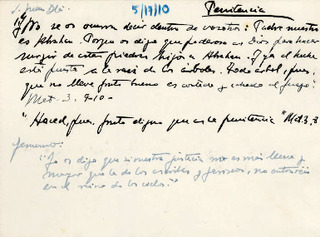 S. Juan
5/17/10
Penitencia
No se os ocurra decir dentro de vosotros: Padre nuestro
es Abrahán. Porque os digo que poderoso es Dios para hacer
surgir de estas piedras hijos a Abrahán. Y ya el hacha
está puesta a la raíz de los árboles. Todo árbol, pues,
que no lleve fruto bueno es cortado y echado al fuego"
Mat. 3, 9-10
"Haced, pues, fruto digno de la penitencia" Mat 3, 8
"Yo os digo que si vuestra justicia no es más llena y
mayor que la de los escribas y fariseos, no entraréis
en el reino de los cielos."